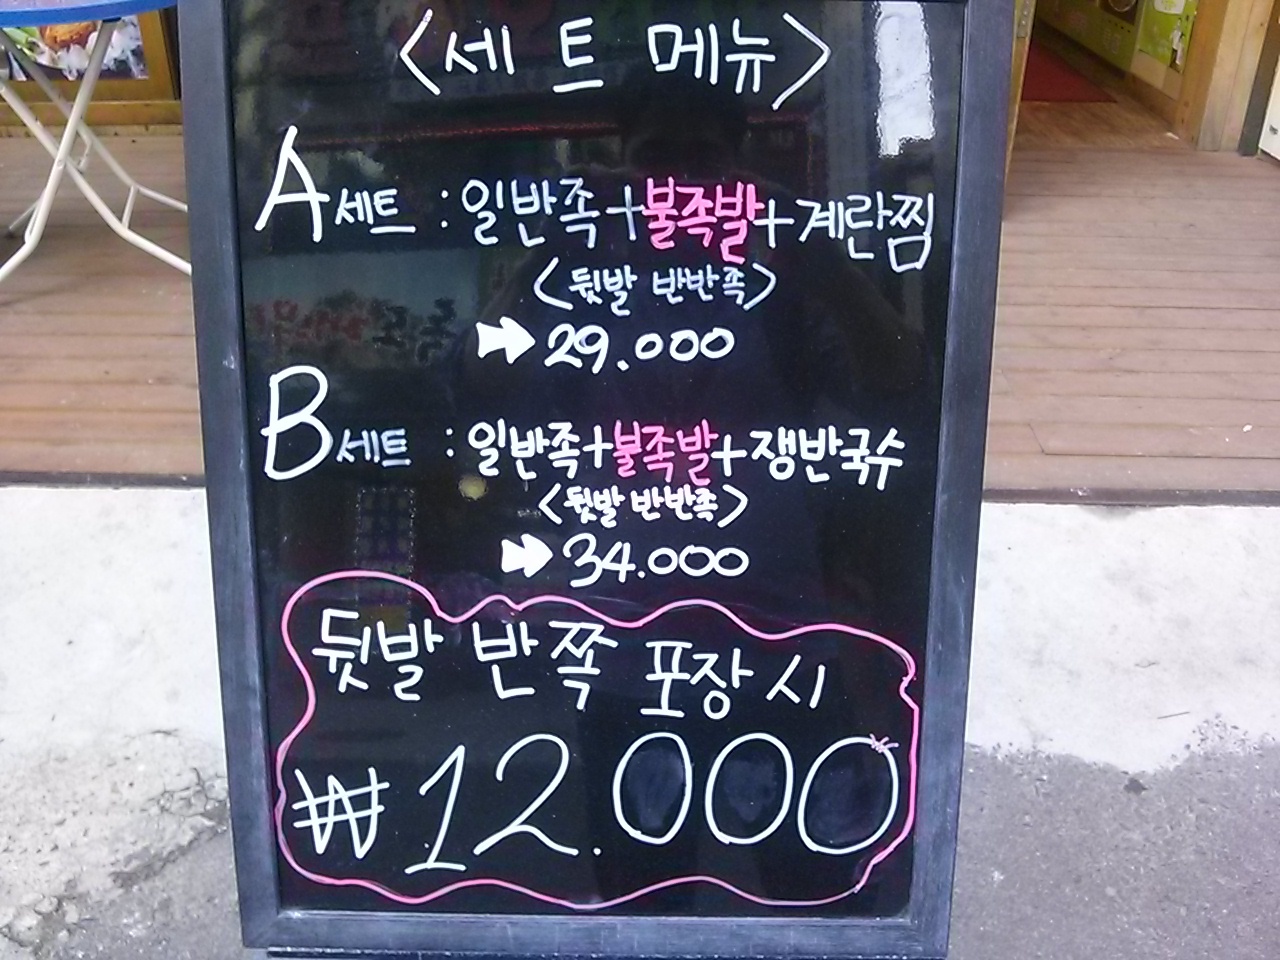 <세트 메뉴>
A세트 : 일반족+불족발+계란찜
<뒷발 반반족>
29.000
B세트 : 일반족+불족발+쟁반국수
<뒷발 반반족>
34.000
뒷발 반쪽 포장 시
₩12.000